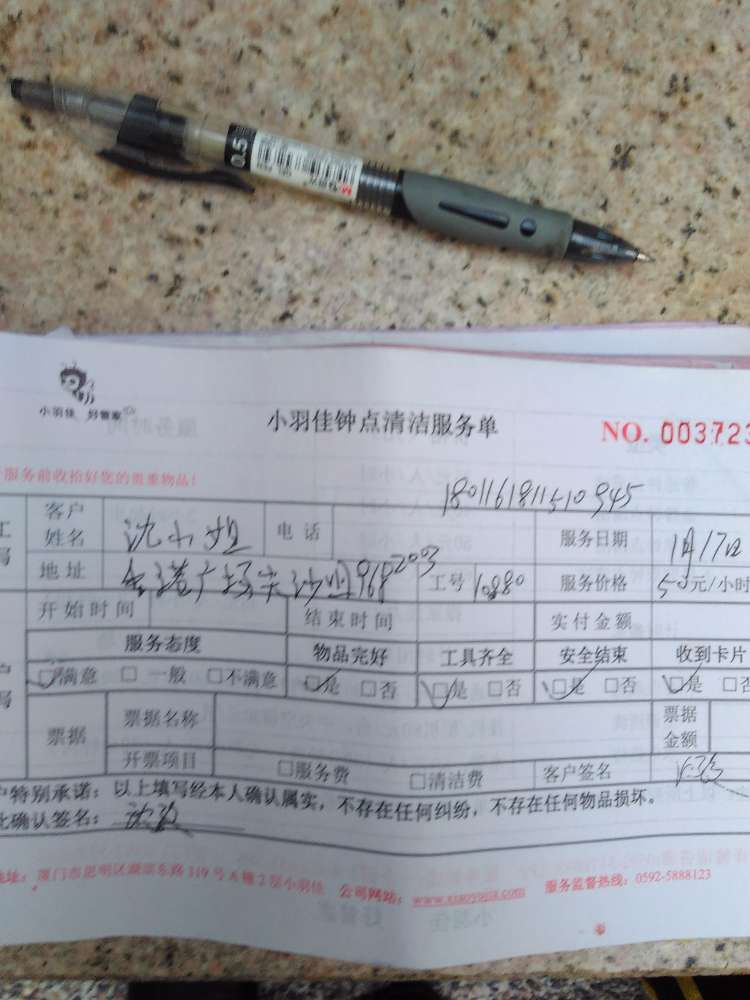 0.5
小羽佳 好管家
小羽佳钟点清洁服务单
NO. 003723
服务前收拾好您的贵重物品!
1801161811510945
客户姓名 沈小姐 电话 服务日期 1月17日
地址 广场 968 2003 工号 10880 服务价格 50元/小时
开始时间 结束时间 实付金额
服务态度 物品完好 工具齐全 安全结束 收到卡片
□满意 □一般 □不满意 □是 □否 □是 □否 □是 □否 □是 □否
票据 票据名称 票据金额
开票项目 □服务费 □清洁费 客户签名
户特别承诺:以上填写经本人确认属实,不存在任何纠纷,不存在任何物品损坏。
此确认签名:
地址:厦门市思明区湖滨东路319号A幢2层小羽佳 公司网站:www.xiaoyujia.com 服务监督热线:0592-5888123